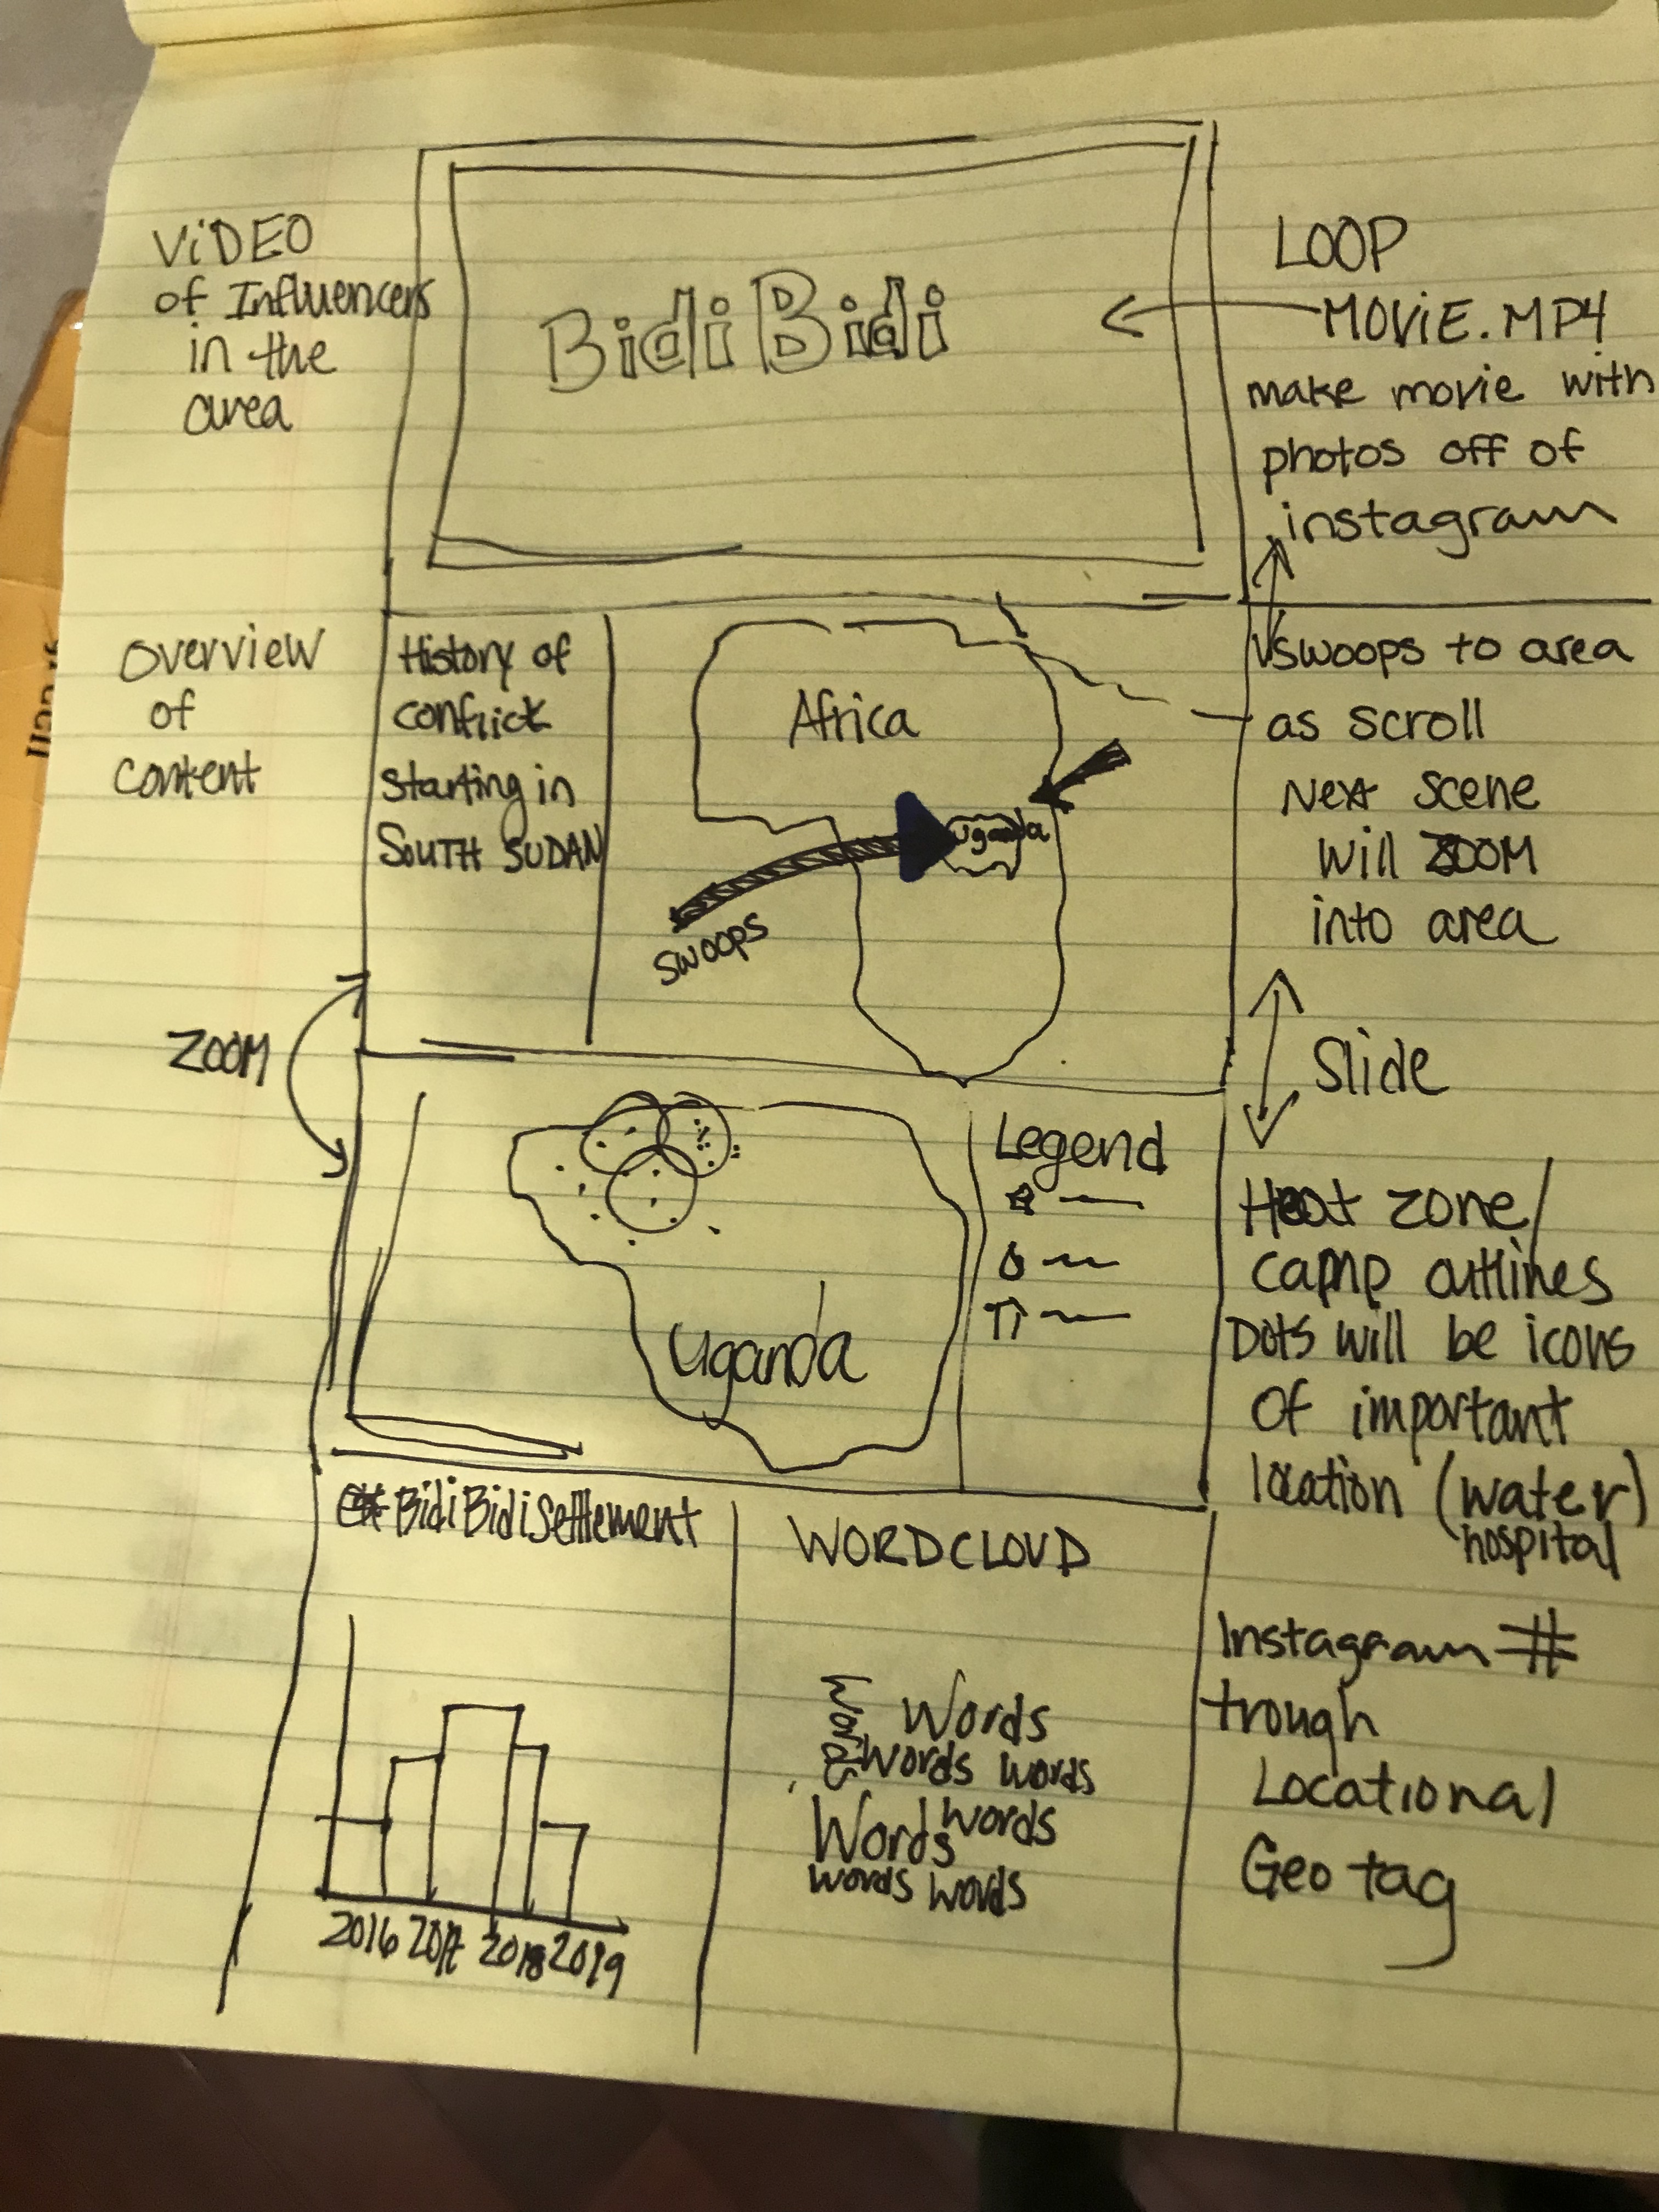 ViDEO
of Influencers
in the
area
BidiBidi
LOOP
MOViE.MP4
make movie with
photos off of
instagram
Overview
of
Content
History of
conflict
Starting in
SOUTH SUDAN
Africa
Uganda
swoops
swoops to area
as scroll
Next scene
will ZOOM
into area
ZOOM
Slide
Uganda
Legend
Heat zone/
camp outlines
Dots will be icons
Of important
location (water)
hospital
BidiBidiSettlement
2016 2017 2018 2019
WORDCLOUD
Words
Words
Words words
Words words
words words
Instagram #
trough
Locational
Geotag